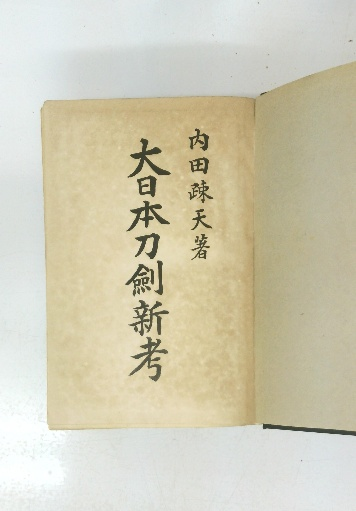 内田疎天著
大日本刀劍新考